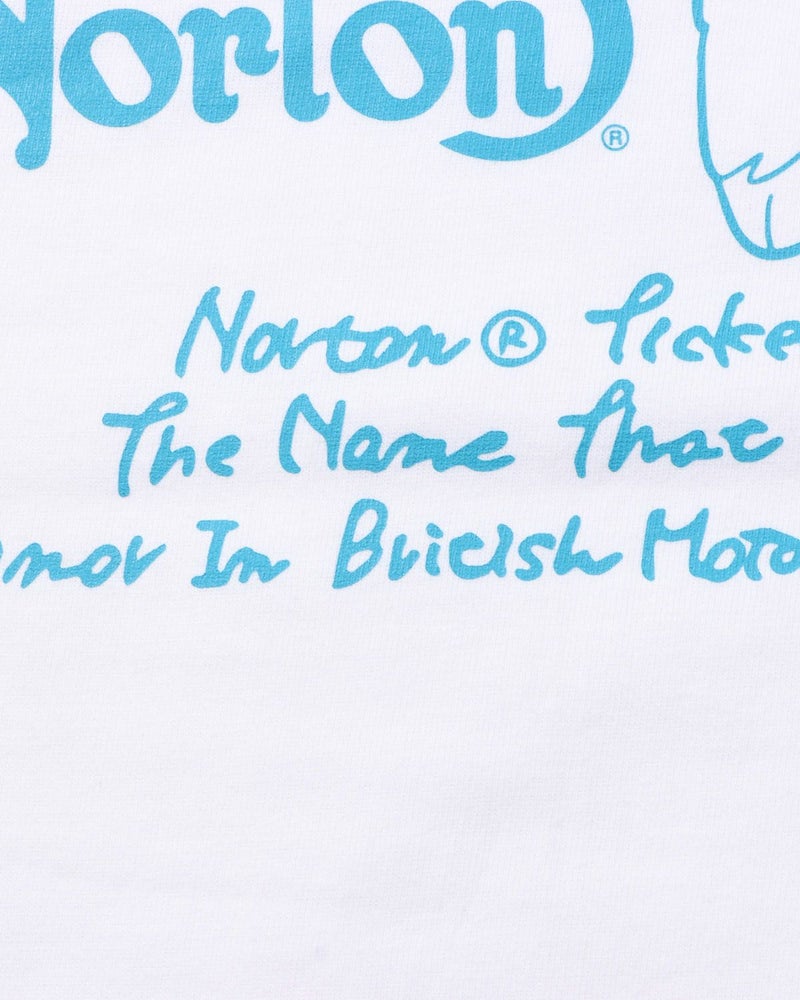 Norton®
Norton® Ticke
The Name That
nnov In British Moto